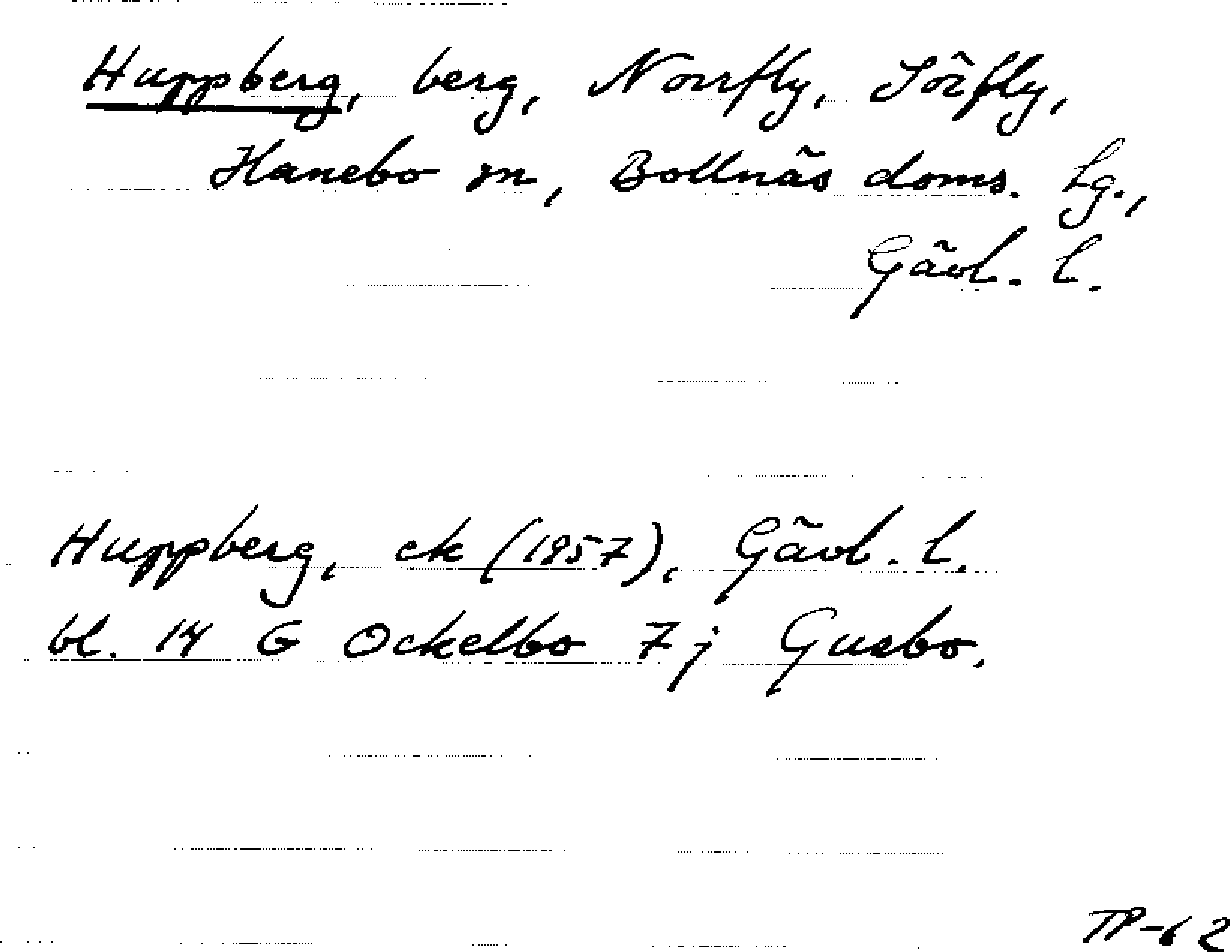 Huppberg, berg, Norrfly, Sörfly,
Hanebo sn, Bollnäs doms. lg.,
Gävl. l.
Huppberg, ek (1957), Gävl. l.
bl. 14 G Ockelbo 7 j Gusbo.
TP-62